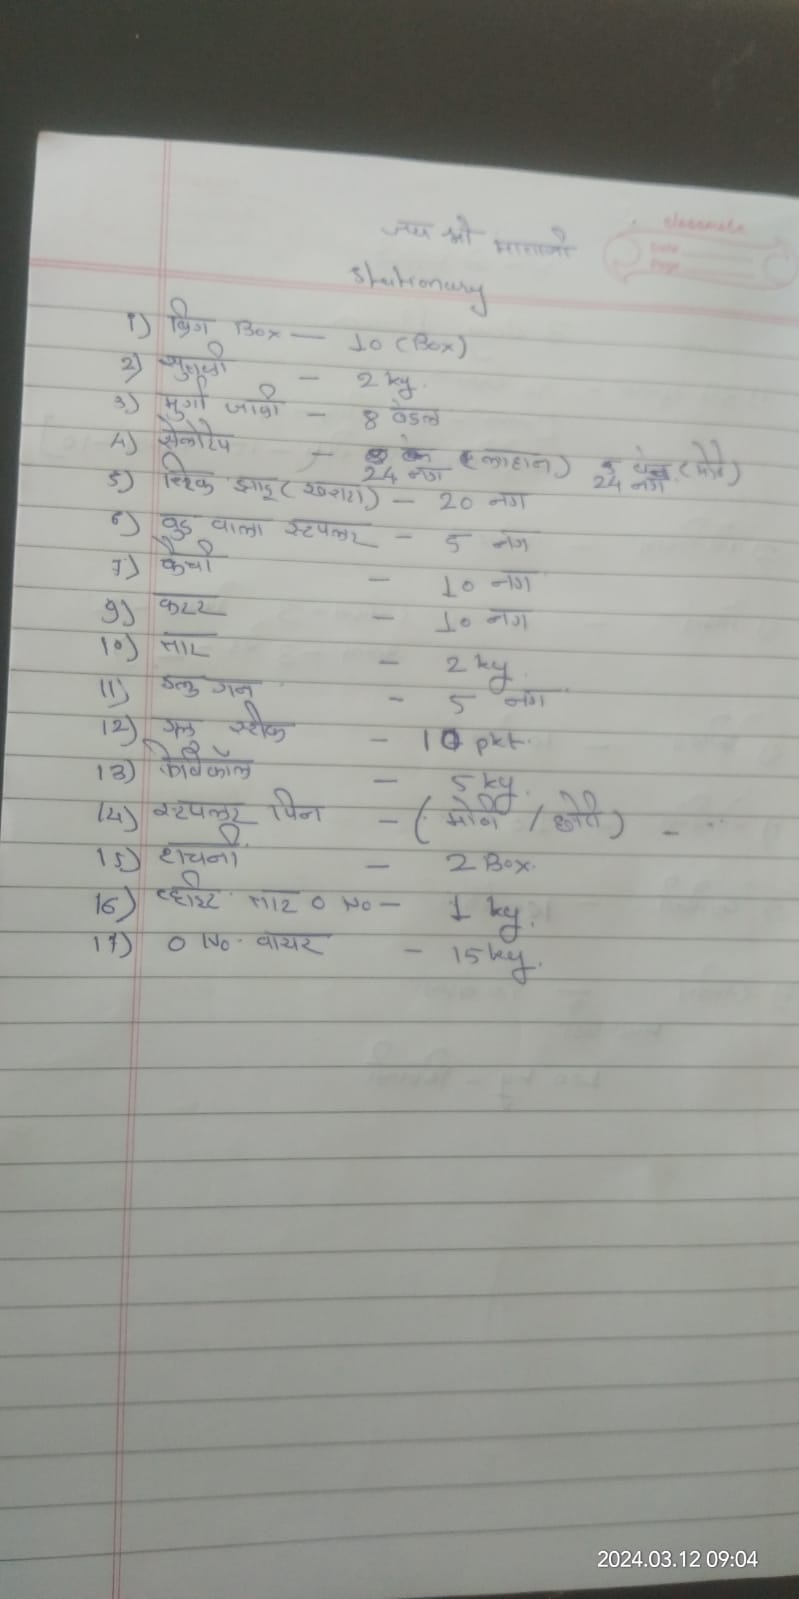 जय श्री माताजी
classmate
Date
Page
Stationary
1) प्रिंग Box — 10 (Box)
2) सुतळी - 2 kg.
3) मुर्गा जाळी - 8 बंडल
4) सेलोटेप - (लाहान) 24 नग (मोठे) 24 नग
5) स्टिक झाडू (खराटा) - 20 नग
6) वुड वाला स्टेपलर - 5 नग
7) कैची - 10 नग
9) कटर - 10 नग
10) तार - 2 kg.
11) ग्लु गन - 5 नग
12) ग्लु स्टीक - 10 pkt.
13) फेविकॉल - 5 kg.
14) स्टेपलर पिन - (मोठी / छोटी) -
15) टाचनी - 2 Box.
16) व्हाईट तार 0 No - 1 kg.
17) 0 No. वायर - 15 kg.
2024.03.12 09:04